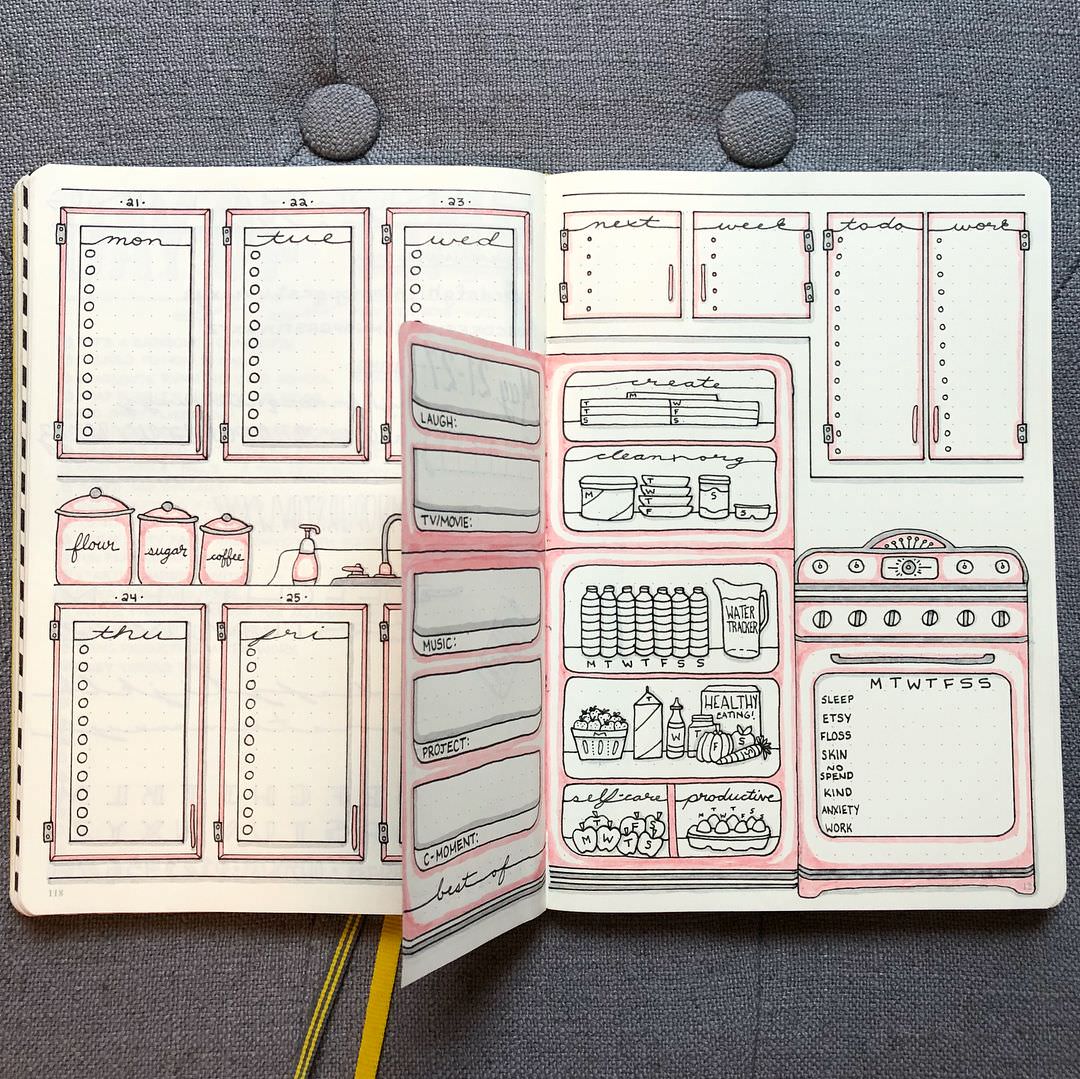 ·21·
·22·
·23·
mon
tue
wed
flour
sugar
coffee
·24·
·25·
thu
fri
118
LAUGH:
TV/MOVIE:
MUSIC:
PROJECT:
C-MOMENT:
best of
next
week
todo
work
create
M
T
W
T
F
S
S
clean + org
M
T
W
T
F
S
S
WATER
TRACKER
M T W T F S S
HEALTHY
EATING!
T
W
F
S
self-care
productive
M T W T F S S
T F S
M W T S
M T W T F S S
SLEEP
ETSY
FLOSS
SKIN
NO
SPEND
KIND
ANXIETY
WORK